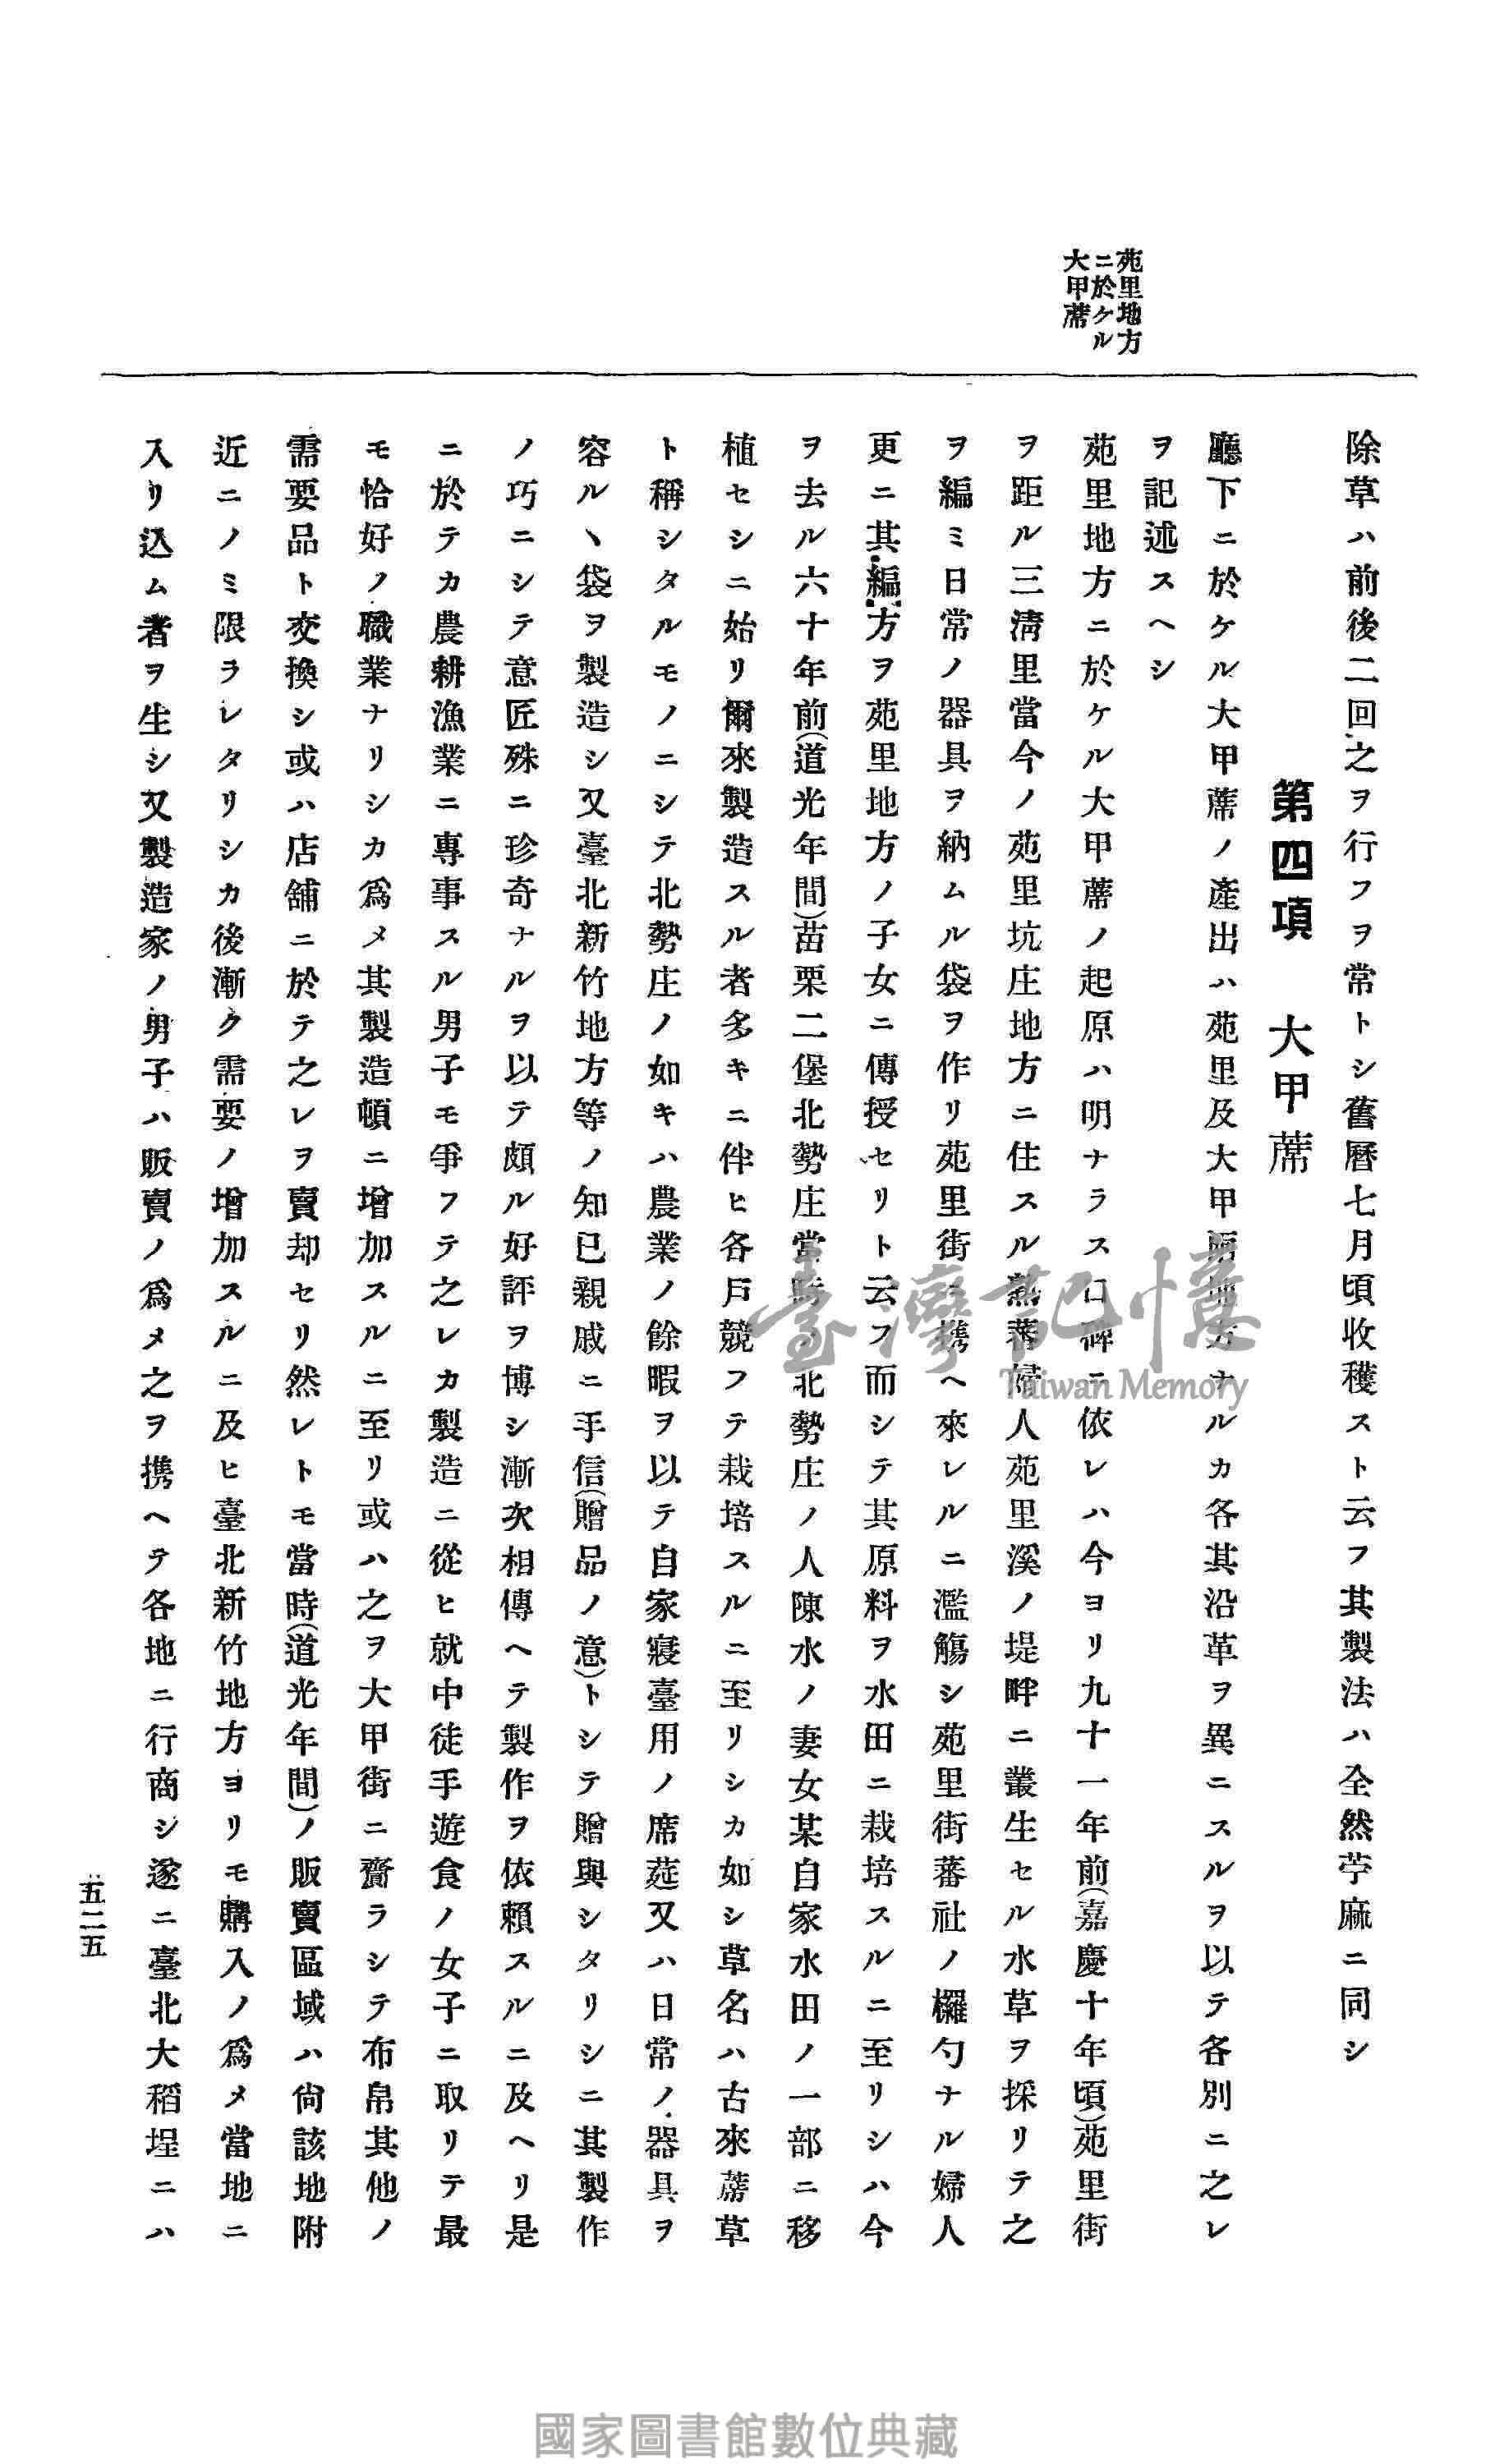 苑里地方
ニ於ケル
大甲蓆
除草ハ前後二回之ヲ行フヲ常トシ舊曆七月頃收穫スト云フ其製法ハ全然苧麻ニ同シ
第四項 大甲蓆
廳下ニ於ケル大甲蓆ノ產出ハ苑里及大甲兩地方ナルカ各其沿革ヲ異ニスルヲ以テ各別ニ之レ
ヲ記述スヘシ
苑里地方ニ於ケル大甲蓆ノ起原ハ明ナラス口碑ニ依レハ今ヨリ九十一年前(嘉慶十年頃)苑里街
ヲ距ル三淸里當今ノ苑里坑庄地方ニ住スル熟蕃婦人苑里溪ノ堤畔ニ叢生セル水草ヲ採リテ之
ヲ編ミ日常ノ器具ヲ納ムル袋ヲ作リ苑里街ニ携ヘ來レルニ濫觴シ苑里街蕃社ノ欏勺ナル婦人
更ニ其編方ヲ苑里地方ノ子女ニ傳授セリト云フ而シテ其原料ヲ水田ニ栽培スルニ至リシハ今
ヲ去ル六十年前(道光年間)苗栗二堡北勢庄當時ノ北勢庄ノ人陳水ノ妻女某自家水田ノ一部ニ移
植セシニ始リ爾來製造スル者多キニ伴ヒ各戶競フテ栽培スルニ至リシカ如シ草名ハ古來蓆草
ト稱シタルモノニシテ北勢庄ノ如キハ農業ノ餘暇ヲ以テ自家寢臺用ノ席莚又ハ日常ノ器具ヲ
容ルヽ袋ヲ製造シ又臺北新竹地方等ノ知己親戚ニ手信(贈品ノ意)トシテ贈與シタリシニ其製作
ノ巧ニシテ意匠殊ニ珍奇ナルヲ以テ頗ル好評ヲ博シ漸次相傳ヘテ製作ヲ依賴スルニ及ヘリ是
ニ於テカ農耕漁業ニ專事スル男子モ爭フテ之レカ製造ニ從ヒ就中徒手遊食ノ女子ニ取リテ最
モ恰好ノ職業ナリシカ爲メ其製造頓ニ增加スルニ至リ或ハ之ヲ大甲街ニ齎ラシテ布帛其他ノ
需要品ト交換シ或ハ店舖ニ於テ之レヲ賣却セリ然レトモ當時(道光年間)ノ販賣區域ハ尙該地附
近ニノミ限ラレタリシカ後漸ク需要ノ增加スルニ及ヒ臺北新竹地方ヨリモ購入ノ爲メ當地ニ
入リ込ム者ヲ生シ又製造家ノ男子ハ販賣ノ爲メ之ヲ携ヘテ各地ニ行商シ遂ニ臺北大稻埕ニハ
五二五
臺灣記憶
Taiwan Memory
國家圖書館數位典藏